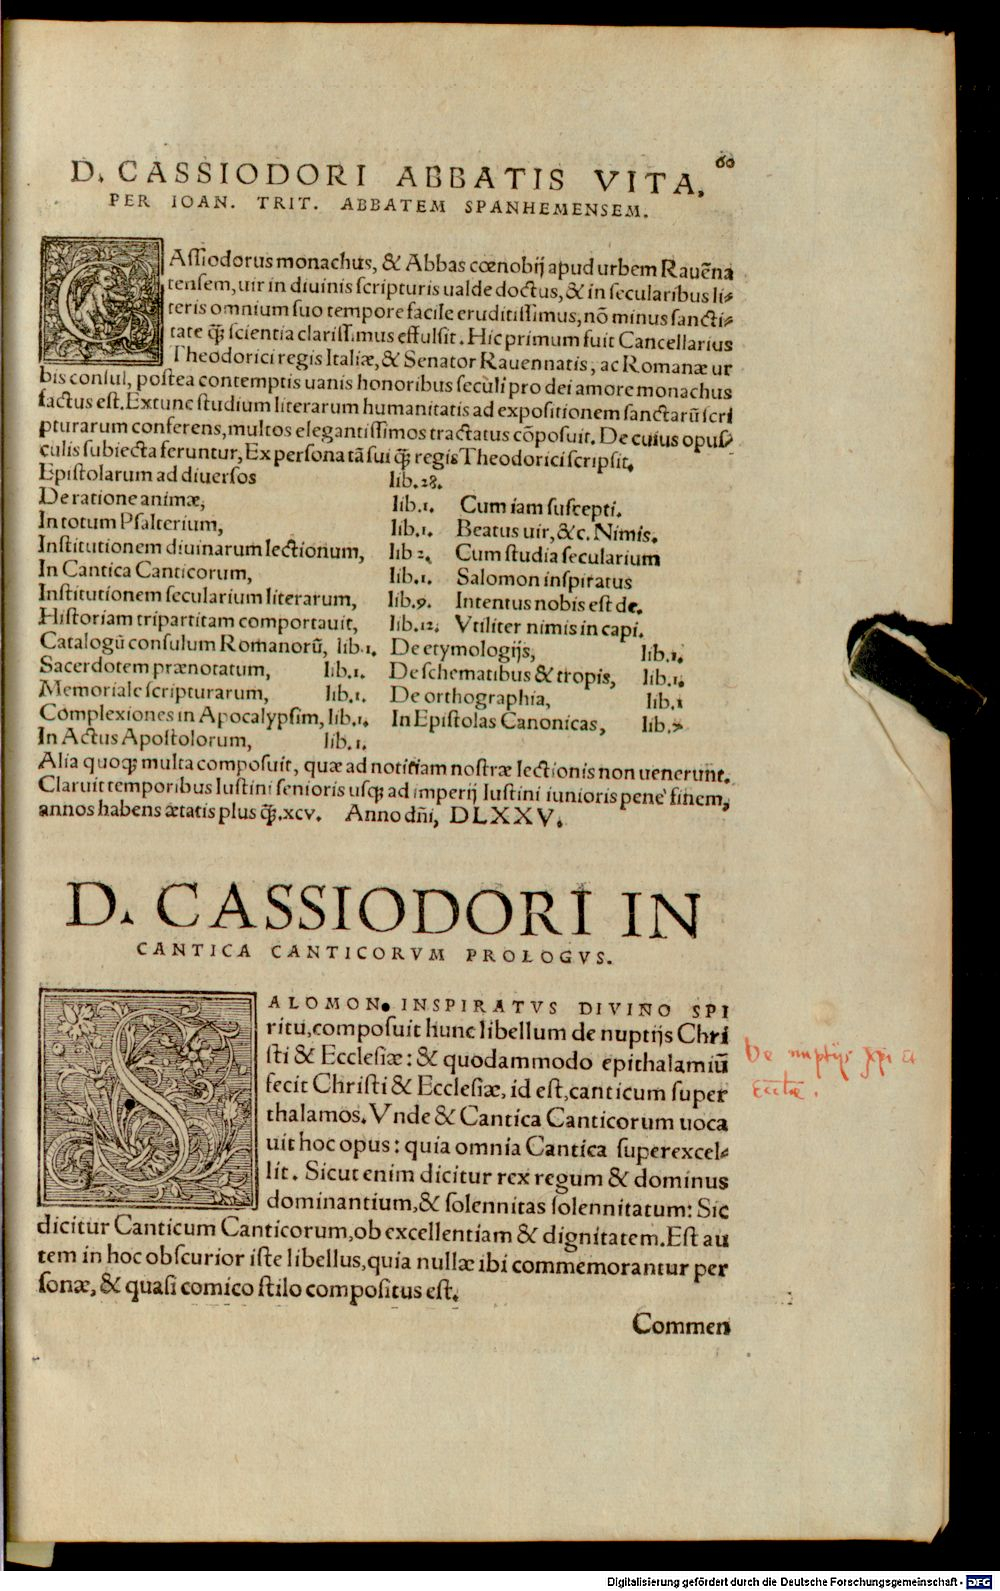 60
D. CASSIODORI ABBATIS VITA,
PER IOAN. TRIT. ABBATEM SPANHEMENSEM.
CAſſiodorus monachus, & Abbas cœnobij apud urbem Rauẽna
tensem, uir in diuinis ſcripturis ualde doctus, & in ſecularibus li⸗
teris omnium ſuo tempore facile eruditiſſimus, nõ minus ſancti⸗
tate q̃ ſcientia clariſſimus effulſit. Hic primum fuit Cancellarius
Theodorici regis Italiæ, & Senator Rauennatis, ac Romanæ ur
bis conſul, poſtea contemptis uanis honoribus ſeculi pro dei amore monachus
factus eſt. Ex tunc ſtudium literarum humanitatis ad expoſitionem ſanctarũ ſcri
pturarum conferens, multos elegantiſſimos tractatus cõpoſuit. De cuius opuſ⸗
culis ſubiecta feruntur, Ex perſona tã ſui q̃ regis Theodorici ſcripſit,
Epiſtolarum ad diuerſos lib. 28.
De ratione animæ, lib. 1. Cum iam ſuſcepti.
In totum Pſalterium, lib. 1. Beatus uir, &c. Nimis.
Inſtitutionem diuinarum lectionum, lib 2. Cum ſtudia ſecularium
In Cantica Canticorum, lib. 1. Salomon inſpiratus
Inſtitutionem ſecularium literarum, lib. 9. Intentus nobis eſt de.
Hiſtoriam tripartitam comportauit, lib. 12. Vtiliter nimis in capi.
Catalogũ conſulum Romanorũ, lib. 1. De etymologijs, lib. 1.
Sacerdotem prænotatum, lib. 1. De ſchematibus & tropis, lib. 1.
Memoriale ſcripturarum, lib. 1. De orthographia, lib. 1
Complexiones in Apocalypſim, lib. 1. In Epiſtolas Canonicas, lib.
In Actus Apoſtolorum, lib. 1.
Alia quoq; multa compoſuit, quæ ad notitiam noſtræ lectionis non uenerunt.
Claruit temporibus Iuſtini ſenioris uſq; ad imperij Iuſtini iunioris penè finem,
annos habens ætatis plus q̃. xcv. Anno dñi, DLXXV.
D. CASSIODORI IN
CANTICA CANTICORVM PROLOGVS.
SALOMON INSPIRATVS DIVINO SPI
ritu, compoſuit hunc libellum de nuptijs Chri
ſti & Eccleſiæ: & quodammodo epithalamiũ
fecit Chriſti & Eccleſiæ, id eſt, canticum ſuper
thalamos. Vnde & Cantica Canticorum uoca
uit hoc opus: quia omnia Cantica ſuperexcel⸗
lit. Sicut enim dicitur rex regum & dominus
dominantium, & ſolennitas ſolennitatum: Sic
dicitur Canticum Canticorum, ob excellentiam & dignitatem. Eſt au
tem in hoc obſcurior iſte libellus, quia nullæ ibi commemorantur per
ſonæ, & quaſi comico ſtilo compoſitus eſt.
Commen
De nuptijs xp̃i et
eccl̃æ.
Digitalisierung gefördert durch die Deutsche Forschungsgemeinschaft - DFG